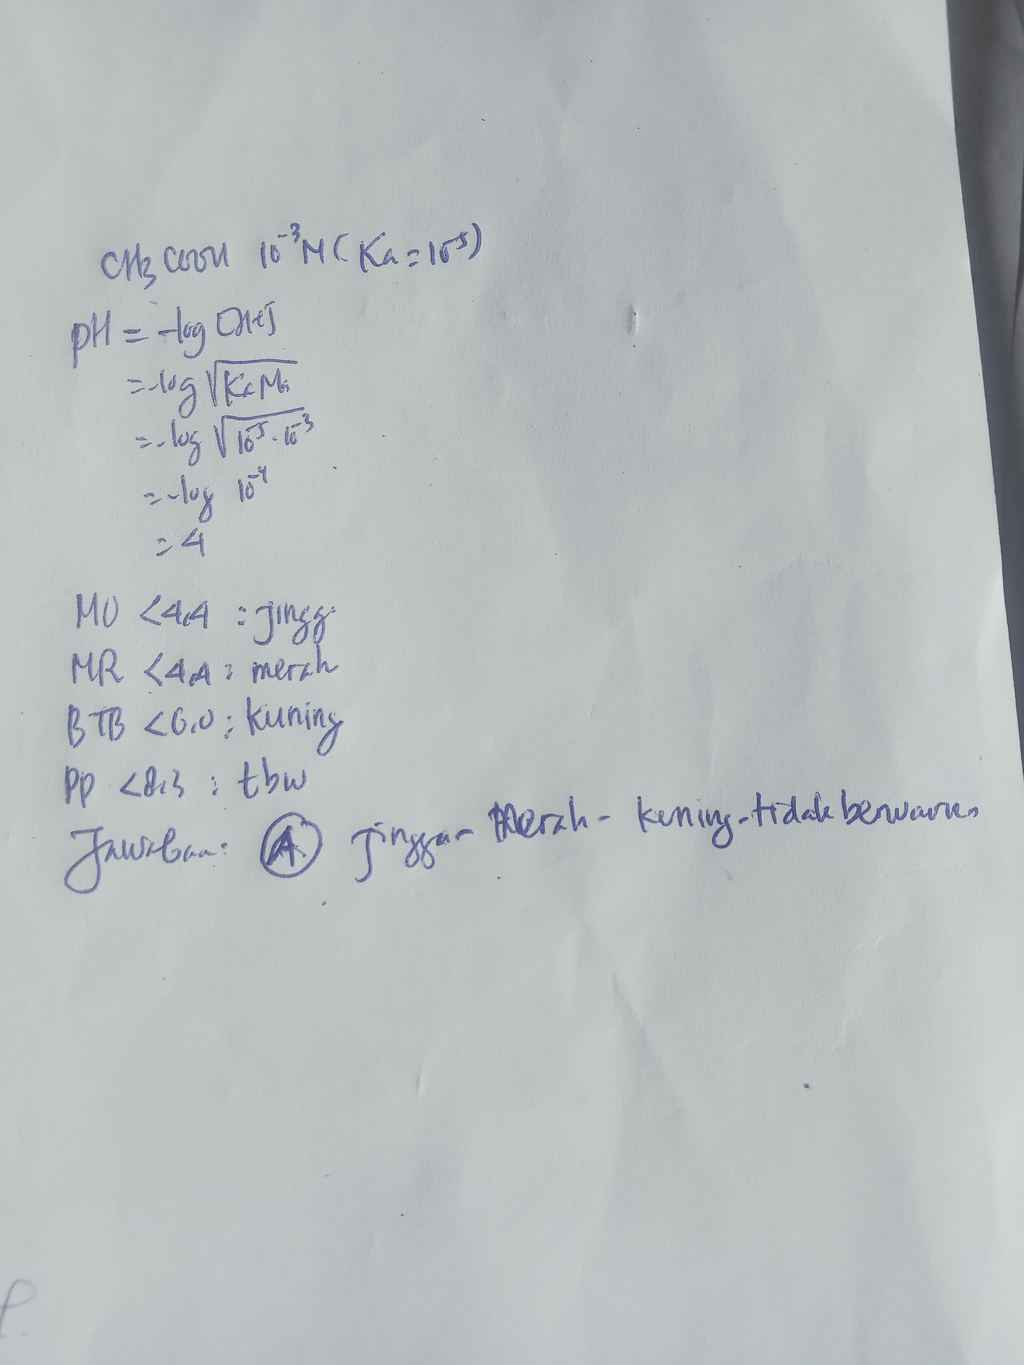 CH3COOH 10⁻³ M (Ka = 10⁻⁵)
pH = -log [H+]
= -log √Ka Ma
= -log √10⁻⁵ . 10⁻³
= -log 10⁻⁴
= 4
MO < 4,4 : jingga
MR < 4,4 : merah
BTB < 6,0 : kuning
PP < 8,3 : tbw
Jawaban: A. jingga - Merah - kuning - tidak berwarna
P.